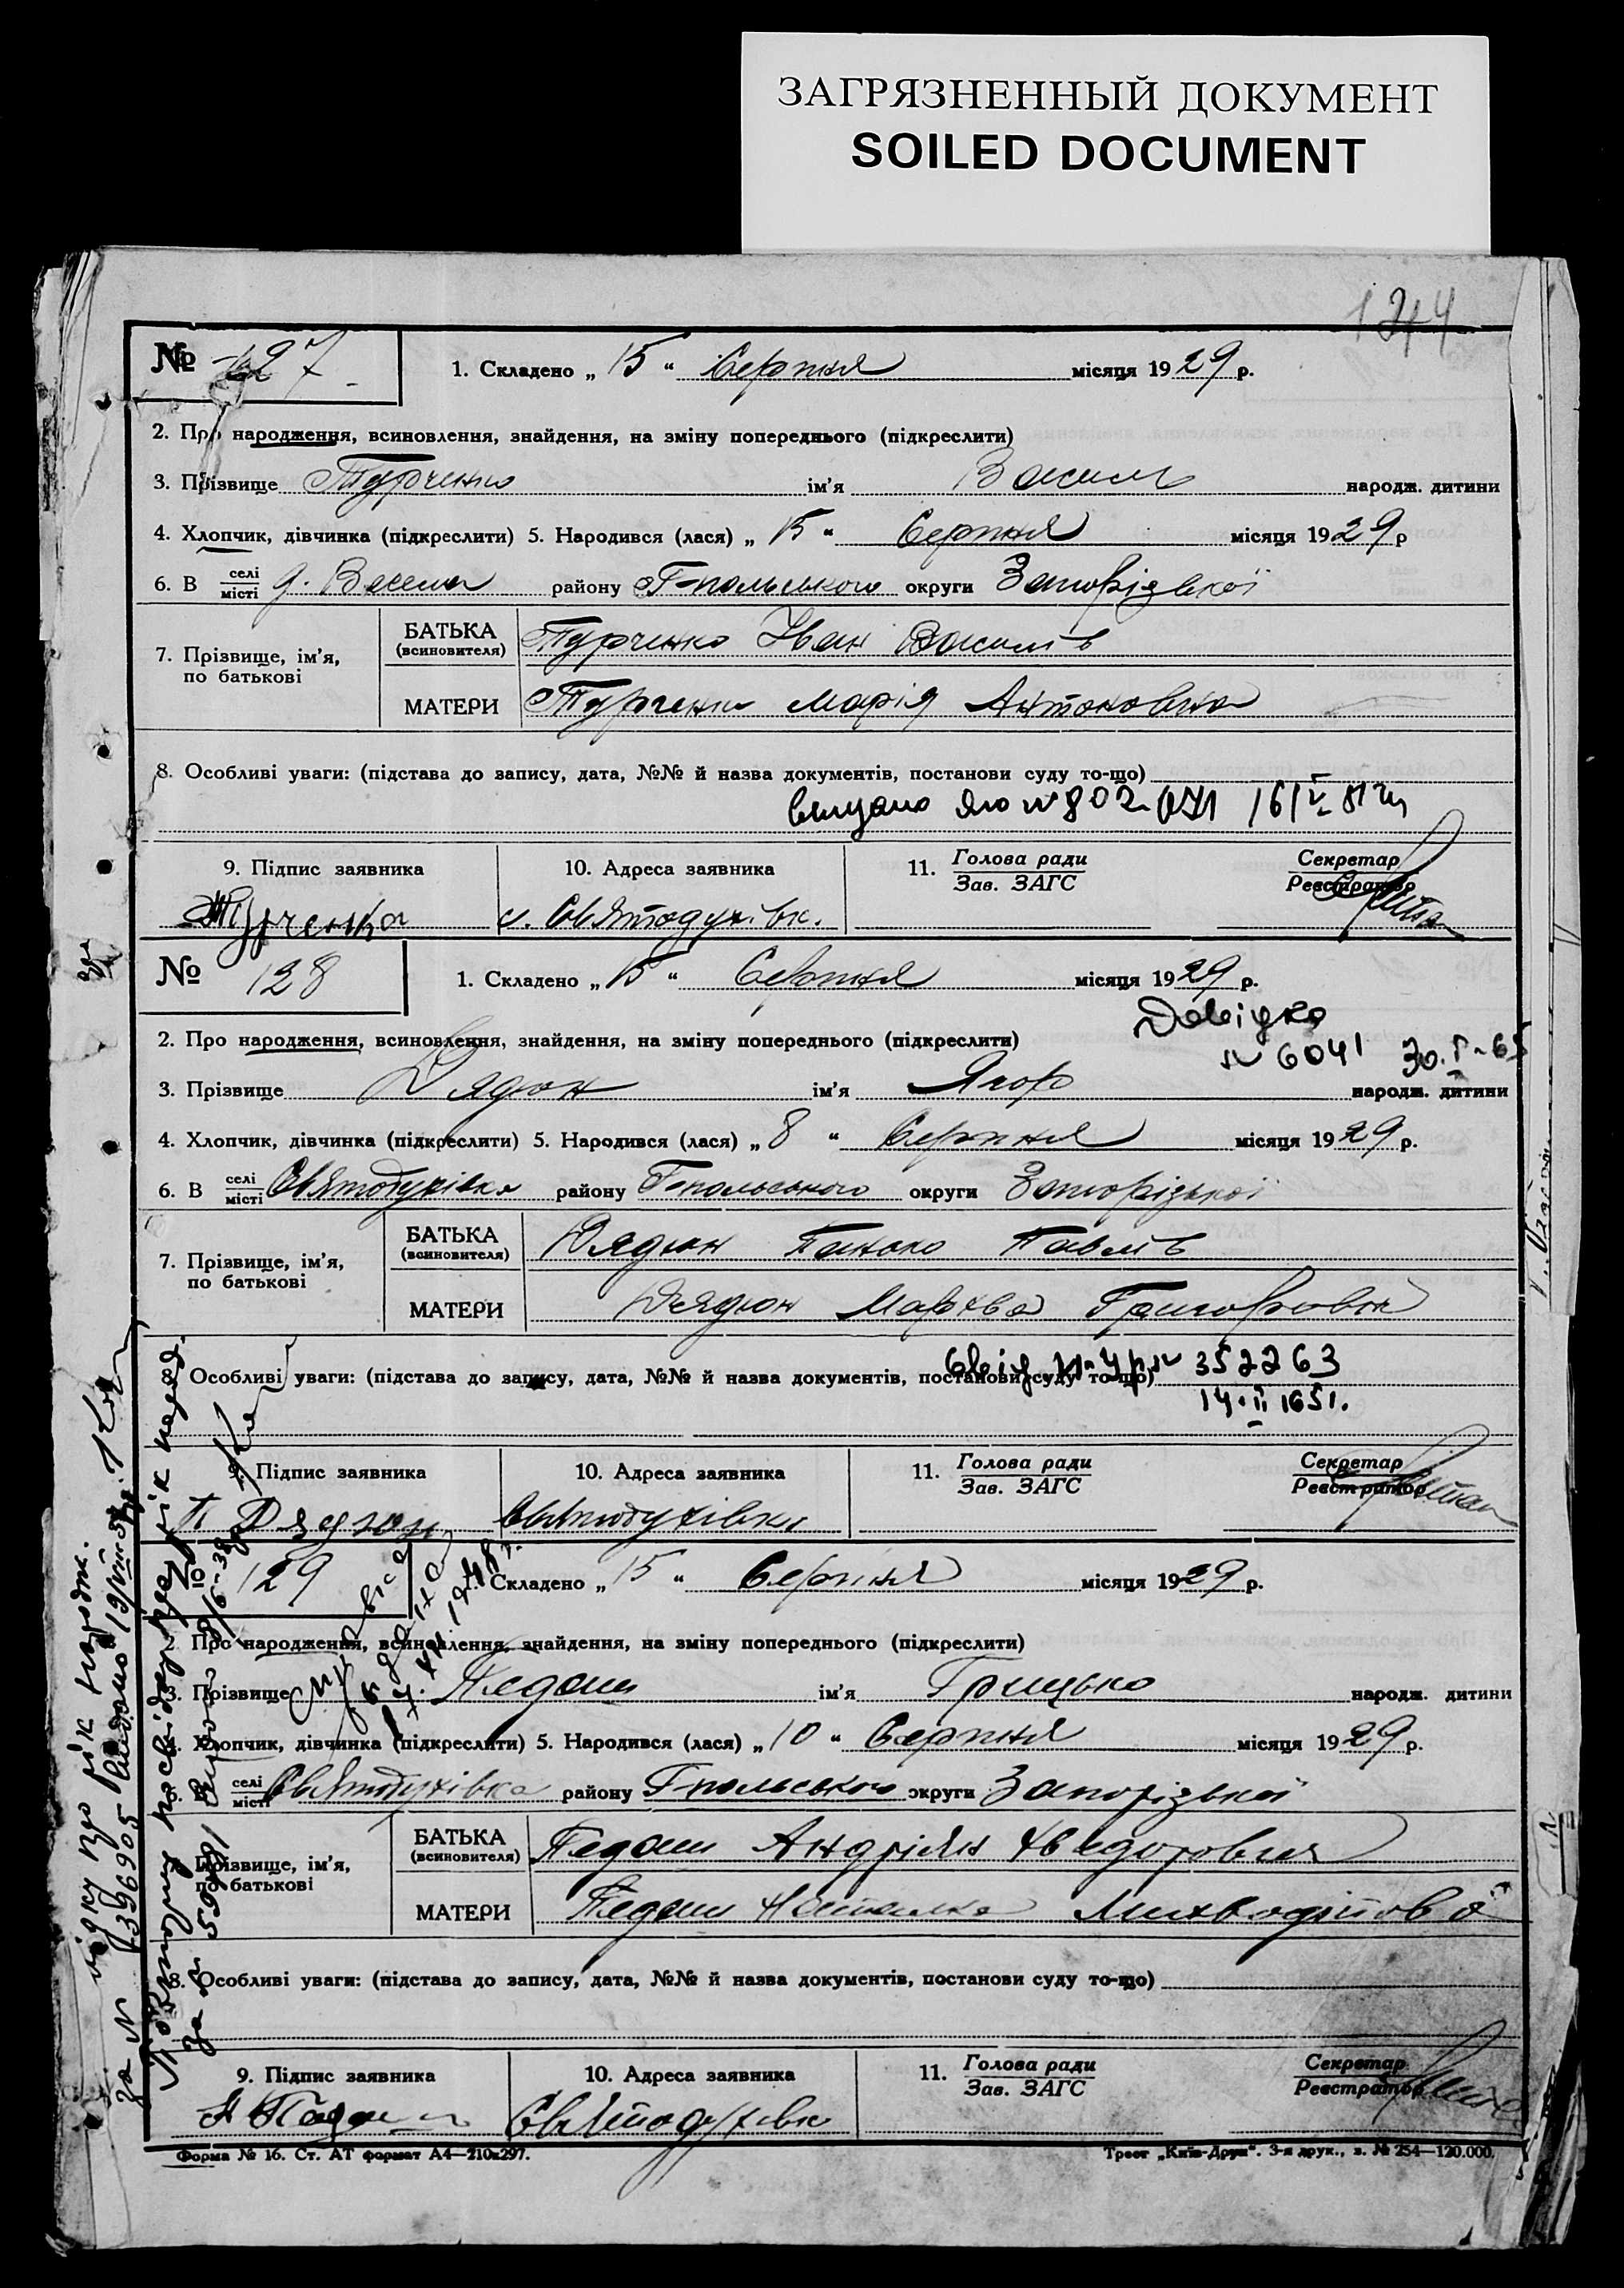 ЗАГРЯЗНЕННЫЙ ДОКУМЕНТ
SOILED DOCUMENT
№ 127
1. Складено „ 15 “ Серпня місяця 1929 р.
2. Про народження, всиновлення, знайдення, на зміну попереднього (підкреслити)
3. Прізвище Турченко ім’я Василь народж. дитини
4. Хлопчик, дівчинка (підкреслити) 5. Народився (лася) „ 15 “ Серпня місяця 1929 р
6. В селі/місті район Г-польського округи Запорізької
7. Прізвище, ім’я, по батькові
БАТЬКА (всиновителя) Турченко Іван Васильв
МАТЕРИ Турченко Марія Антоновна
8. Особливі уваги: (підстава до запису, дата, №№ й назва документів, постанови суду то-що)
9. Підпис заявника 10. Адреса заявника 11. Голова ради / Зав. ЗАГС Секретар / Реєстратор
Турченко с. Святодухівк.
№ 128
1. Складено „ 15 “ Серпня місяця 1929 р.
Довідка
№ 6041
2. Про народження, всиновлення, знайдення, на зміну попереднього (підкреслити)
3. Прізвище Дядюн ім’я Ягор народж. дитини
4. Хлопчик, дівчинка (підкреслити) 5. Народився (лася) „ 8 “ Серпня місяця 1929 р.
6. В селі/місті Святодухівка району Г-польського округи Запорізької
7. Прізвище, ім’я, по батькові
БАТЬКА (всиновителя) Дядюн Панько Павлів
МАТЕРИ Дядюн Мархва Григоровна
352263
Особливі уваги: (підстава до запису, дата, №№ й назва документів, постанови суду то-що)
9. Підпис заявника 10. Адреса заявника 11. Голова ради / Зав. ЗАГС Секретар / Реєстратор
П Дядюн Святодухівка
№ 129
1. Складено „ 15 “ Серпня місяця 1929 р.
2. Про народження, всиновлення, знайдення, на зміну попереднього (підкреслити)
3. Прізвище Педаш ім’я Грицько народж. дитини
4. Хлопчик, дівчинка (підкреслити) 5. Народився (лася) „ 10 “ Серпня місяця 1929 р.
6. В селі/місті Святодухівка району Г-польського округи Запорізької
7. Прізвище, ім’я, по батькові
БАТЬКА (всиновителя) Педаш Андріян
МАТЕРИ Педаш
8. Особливі уваги: (підстава до запису, дата, №№ й назва документів, постанови суду то-що)
9. Підпис заявника 10. Адреса заявника 11. Голова ради / Зав. ЗАГС Секретар / Реєстратор
Святодухівка
Форма № 16. Ст. АТ формат А4—210х297. Трест „Київ-Друк“. 3-я друк., з. № 254—120.000.